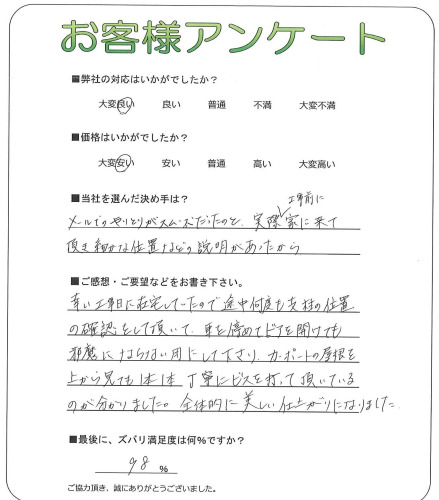 お客様アンケート
■弊社の対応はいかがでしたか?
大変良い 良い 普通 不満 大変不満
■価格はいかがでしたか?
大変安い 安い 普通 高い 大変高い
■当社を選んだ決め手は?
工事前に
メールでのやりとりがスムーズだったのと、実際家に来て
頂き細かな位置などの説明があったから
■ご感想・ご要望などをお書き下さい。
幸い工事日に在宅していたので途中何度も支柱の位置
の確認をして頂いて、車を停めてドアを開けても
邪魔にならない用にして下さり、カーポートの屋根を
上から見ても1本1本丁寧にビスを打って頂いている
のが分かりました。全体的に美しい仕上がりになりました。
■最後に、ズバリ満足度は何%ですか?
98 %
ご協力頂き、誠にありがとうございました。